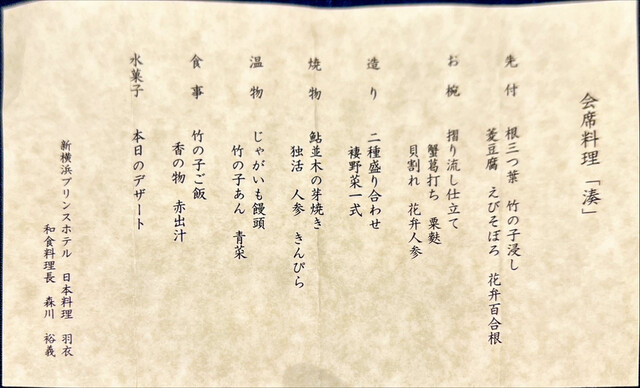 会席料理 「湊」
先付 根三つ葉 竹の子浸し
菱豆腐 えびそぼろ 花弁百合根
お椀 摺り流し仕立て
蟹葛打ち 粟麩
貝割れ 花弁人参
造り 二種盛り合わせ
褄野菜一式
焼物 鮎並木の芽焼き
独活 人参 きんぴら
温物 じゃがいも饅頭
竹の子あん 青菜
食事 竹の子ご飯
香の物 赤出汁
水菓子 本日のデザート
新横浜プリンスホテル 日本料理 羽衣
和食料理長 森川 裕義